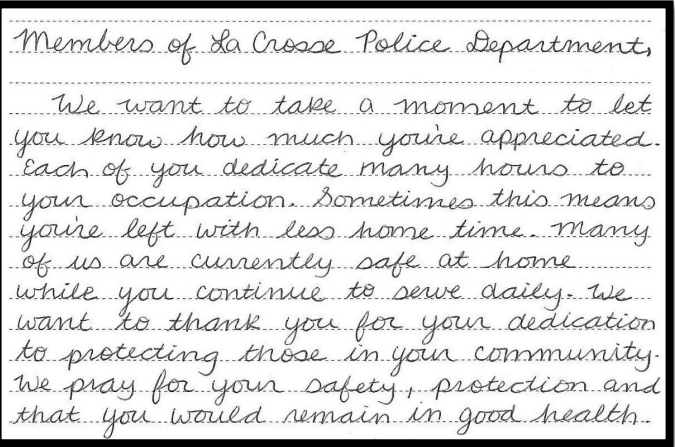 Members of La Crosse Police Department,
We want to take a moment to let
you know how much you're appreciated.
Each of you dedicate many hours to
your occupation. Sometimes this means
you're left with less home time. Many
of us are currently safe at home
while you continue to serve daily. We
want to thank you for your dedication
to protecting those in your community.
We pray for your safety, protection and
that you would remain in good health.